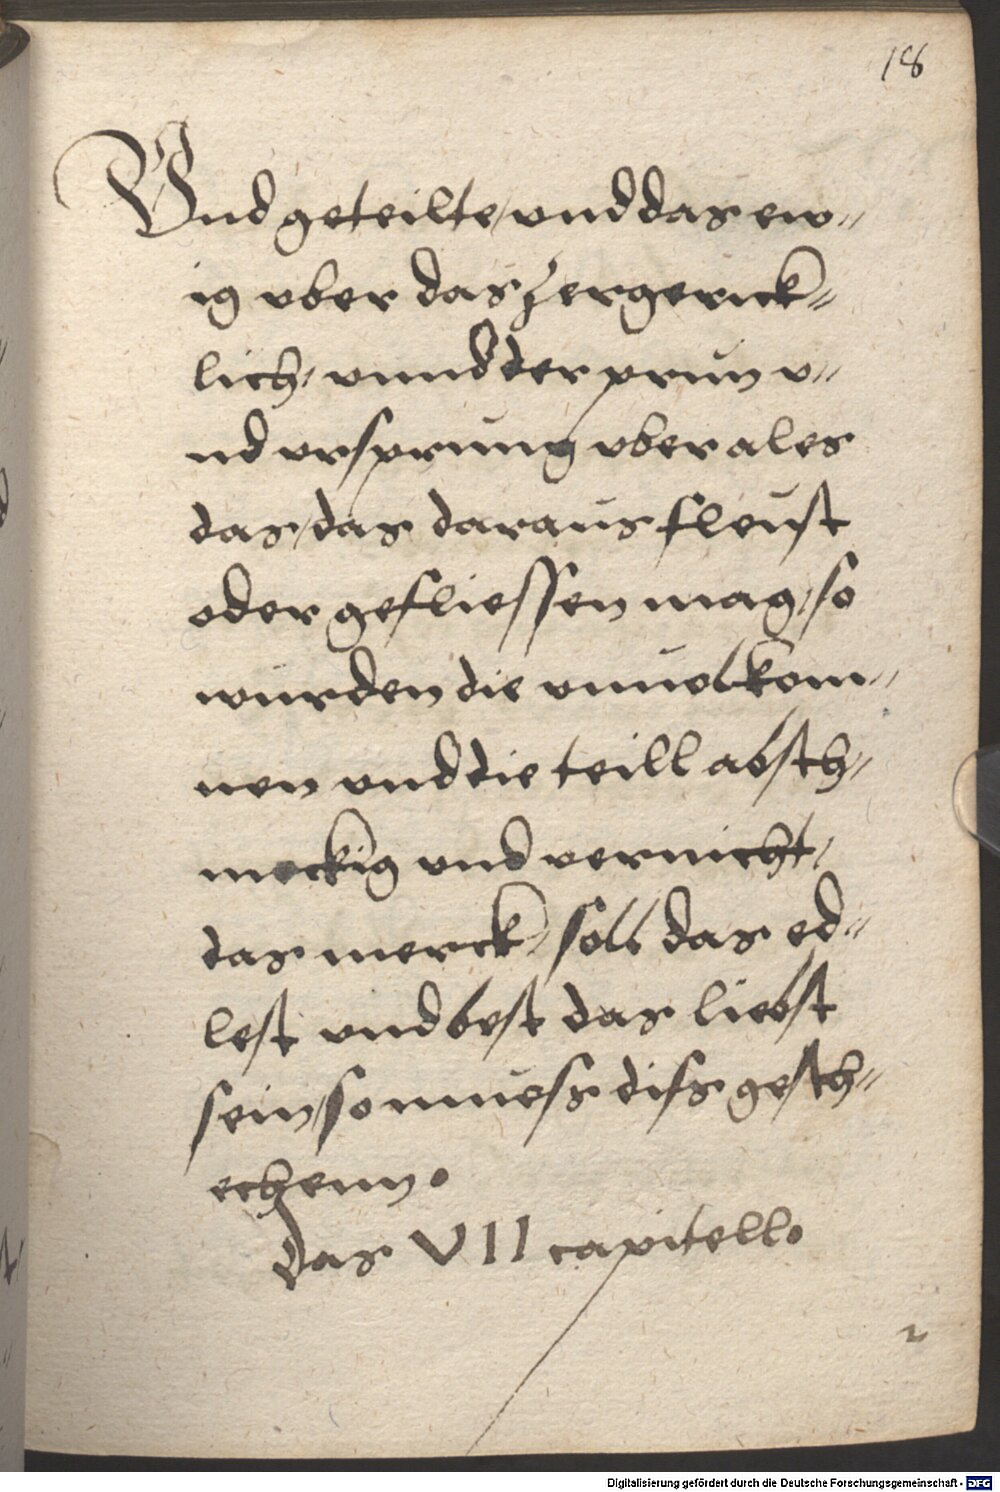 18
Vnd geteilte / vnd das ew=
ig vber das zergenck=
lich / vnnd der prun v=
nd vrsprung vber ales
das / das daraus fleust
oder gefliessen mag / so
wurden die vnuolkom=
nen vnd die teill absch=
meckig vnd vernicht /
das merck / soll das ed=
lest vnd best das liebst
sein / so muess diss gesch=
echenn.
Das VII capitell.
Digitalisierung gefördert durch die Deutsche Forschungsgemeinschaft - DFG